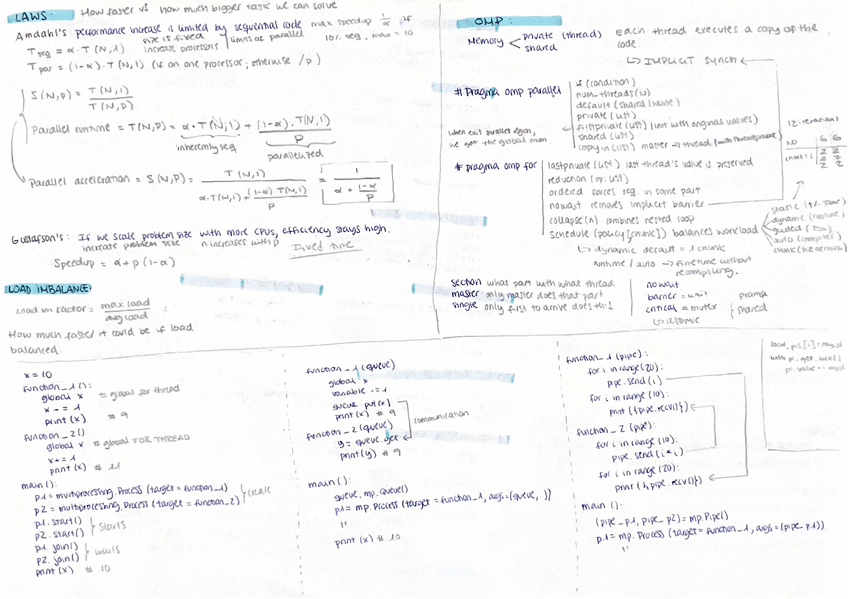 LAWS: How faster vs How much bigger task we can solve
Amdahl's performance increase is limited by sequential code max speedup 1/α, if
size is fixed limits at parallel 10% seq, max = 10
increase processors
Tseq = α · T(N,1)
Tpar = (1-α) · T(N,1) (if on one processor; otherwise /p)
S(N,p) = T(N,1) / T(N,p)
Parallel runtime = T(N,P) = α · T(N,1) + (1-α) · T(N,1) / P
inherently seq parallelized
Parallel acceleration = S(N,P) = T(N,1) / (α·T(N,1) + (1-α)·T(N,1) / P) = 1 / (α + (1-α)/P)
Gustafson's: If we scale problem size with more CPUs, efficiency stays high.
increase problem size n increases with p Fixed time
Speedup = α + p(1-α)
LOAD IMBALANCE:
Load im factor = max load / avg load
How much faster it could be if load
balanced.
OMP:
Memory < private (thread)
shared
Each thread executes a copy of the
code.
↳ IMPLICIT SYNCH
# Pragma omp parallel
if (condition)
num_threads(N)
default (shared | none)
private (list)
firstprivate (list) (init with original values)
shared (list)
copyin (list) master → thread
when exit parallel region,
we get the global num.
# pragma omp for
lastprivate (list) last thread's value is preserved
reduction (op: list)
ordered forces seq. in some part
nowait removes implicit barrier
collapse(n) combines nested loop
Schedule (policy [,chunk]) balances workload
↳ dynamic default = 1 chunk
runtime / auto → finetune without
recompiling.
12 iterations
NO 6 6
chunk: 2
2 2
2 2
static
dynamic
guided
auto (compiler)
section what part with what thread
master only master does that part
single only first to arrive does this
nowait
barrier = wait
critical = mutex
↳ atomic
shared
x = 10
function_1():
global x = global for thread
x -= 1
print(x) # 9
function_2()
global x # global FOR THREAD
x += 1
print(x) # 11
main():
p1 = multiprocessing.Process (target = function_1)
p2 = multiprocessing.Process (target = function_2) create
p1.start()
p2.start() starts
p1.join()
p2.join() waits
print(x) # 10
function_1(queue)
global x
variable -= 1
queue.put(x)
print(x) # 9
communication
function_2(queue)
y = queue.get
print(y) # 9
main():
queue = mp.Queue()
p1 = mp.Process (target = function_1, args=(queue, ))
"
print(x) # 10
function_1 (pipe):
for i in range(20):
pipe.send(i)
for i in range(10):
print (f{pipe.recv()})
function_2 (pipe):
for i in range(10):
pipe.send(i*i)
for i in range(20):
print (f{pipe.recv()})
main ():
(pipe_p1, pipe_p2) = mp.Pipe()
p1 = mp.Process (target = function_1, args = (pipe_p1))
"